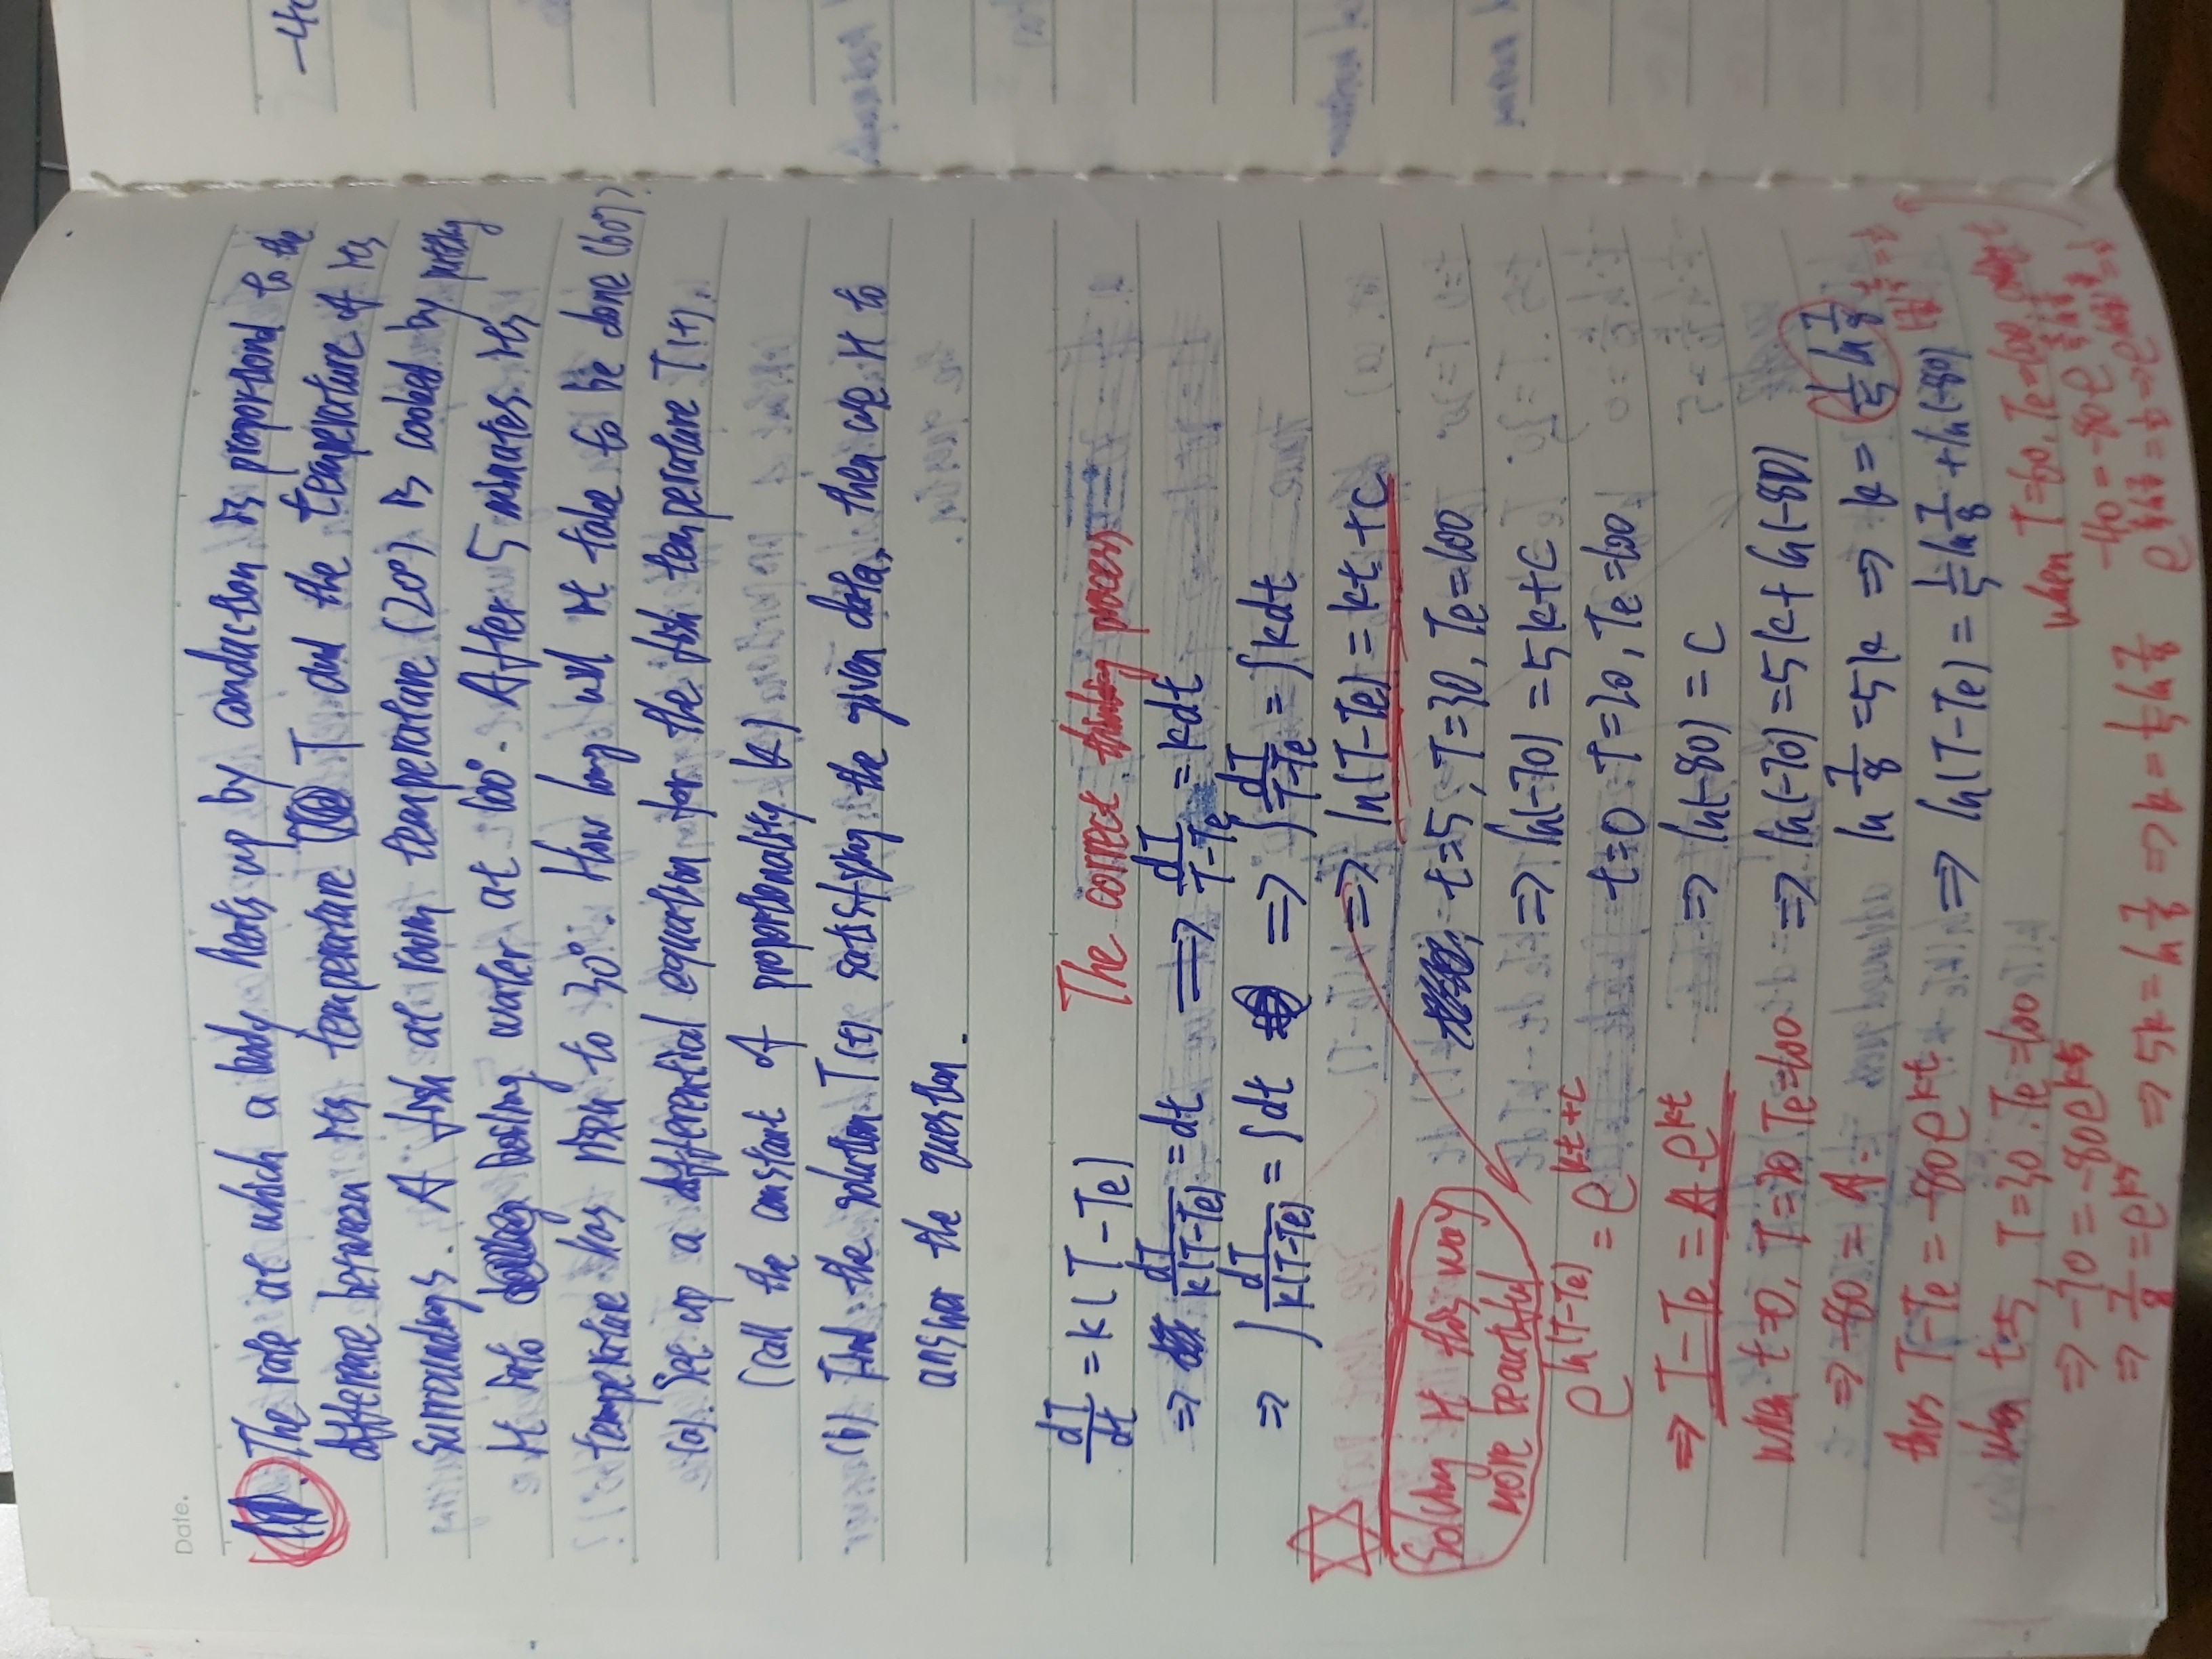 Date.
The rate at which a body heats up by conduction is proportional to the
difference between its temperature T and the temperature of its
surroundings. A fish at room temperature (20°) is cooked by putting
it into boiling water at 100°. After 5 minutes its
temperature has risen to 30°. How long will it take to be done (60°)?
(a). Set up a differential equation for the fish temperature T(t).
(call the constant of proportionality k)
(b) Find the solution T(t) satisfying the given data, then use it to
answer the question.
dT/dt = k(T-Te)
The correct thinking process
⇒ dT/k(T-Te) = dt ⇒ dT/T-Te = kdt
⇒ ∫ dT/k(T-Te) = ∫dt ⇒ ∫ dT/T-Te = ∫kdt
⇒ ln(T-Te) = kt + c
Solving it this way
more beautiful
e^ln(T-Te) = e^kt+c
⇒ T-Te = A·e^kt
when t=0, T=20 Te=100
⇒ -80 = A.
thus T-Te = -80e^kt
when t=5, T=30. Te=100
⇒ -70 = -80e^k5
⇒ 7/8 = e^k5 ⇒ 5k = ln 7/8 ⇒ k = 1/5 ln 7/8
t=5, T=30, Te=100
⇒ ln(-70) = 5k+c
t=0 T=20, Te=100
⇒ ln(-80) = c
⇒ ln(-70) = 5k+ln(-80)
ln 7/8 = 5k ⇒ k = 1/5 ln 7/8
⇒ ln(T-Te) = 1/5 ln 7/8 + ln(-80)
when T=60, Te=100
-40 = -80e
-40